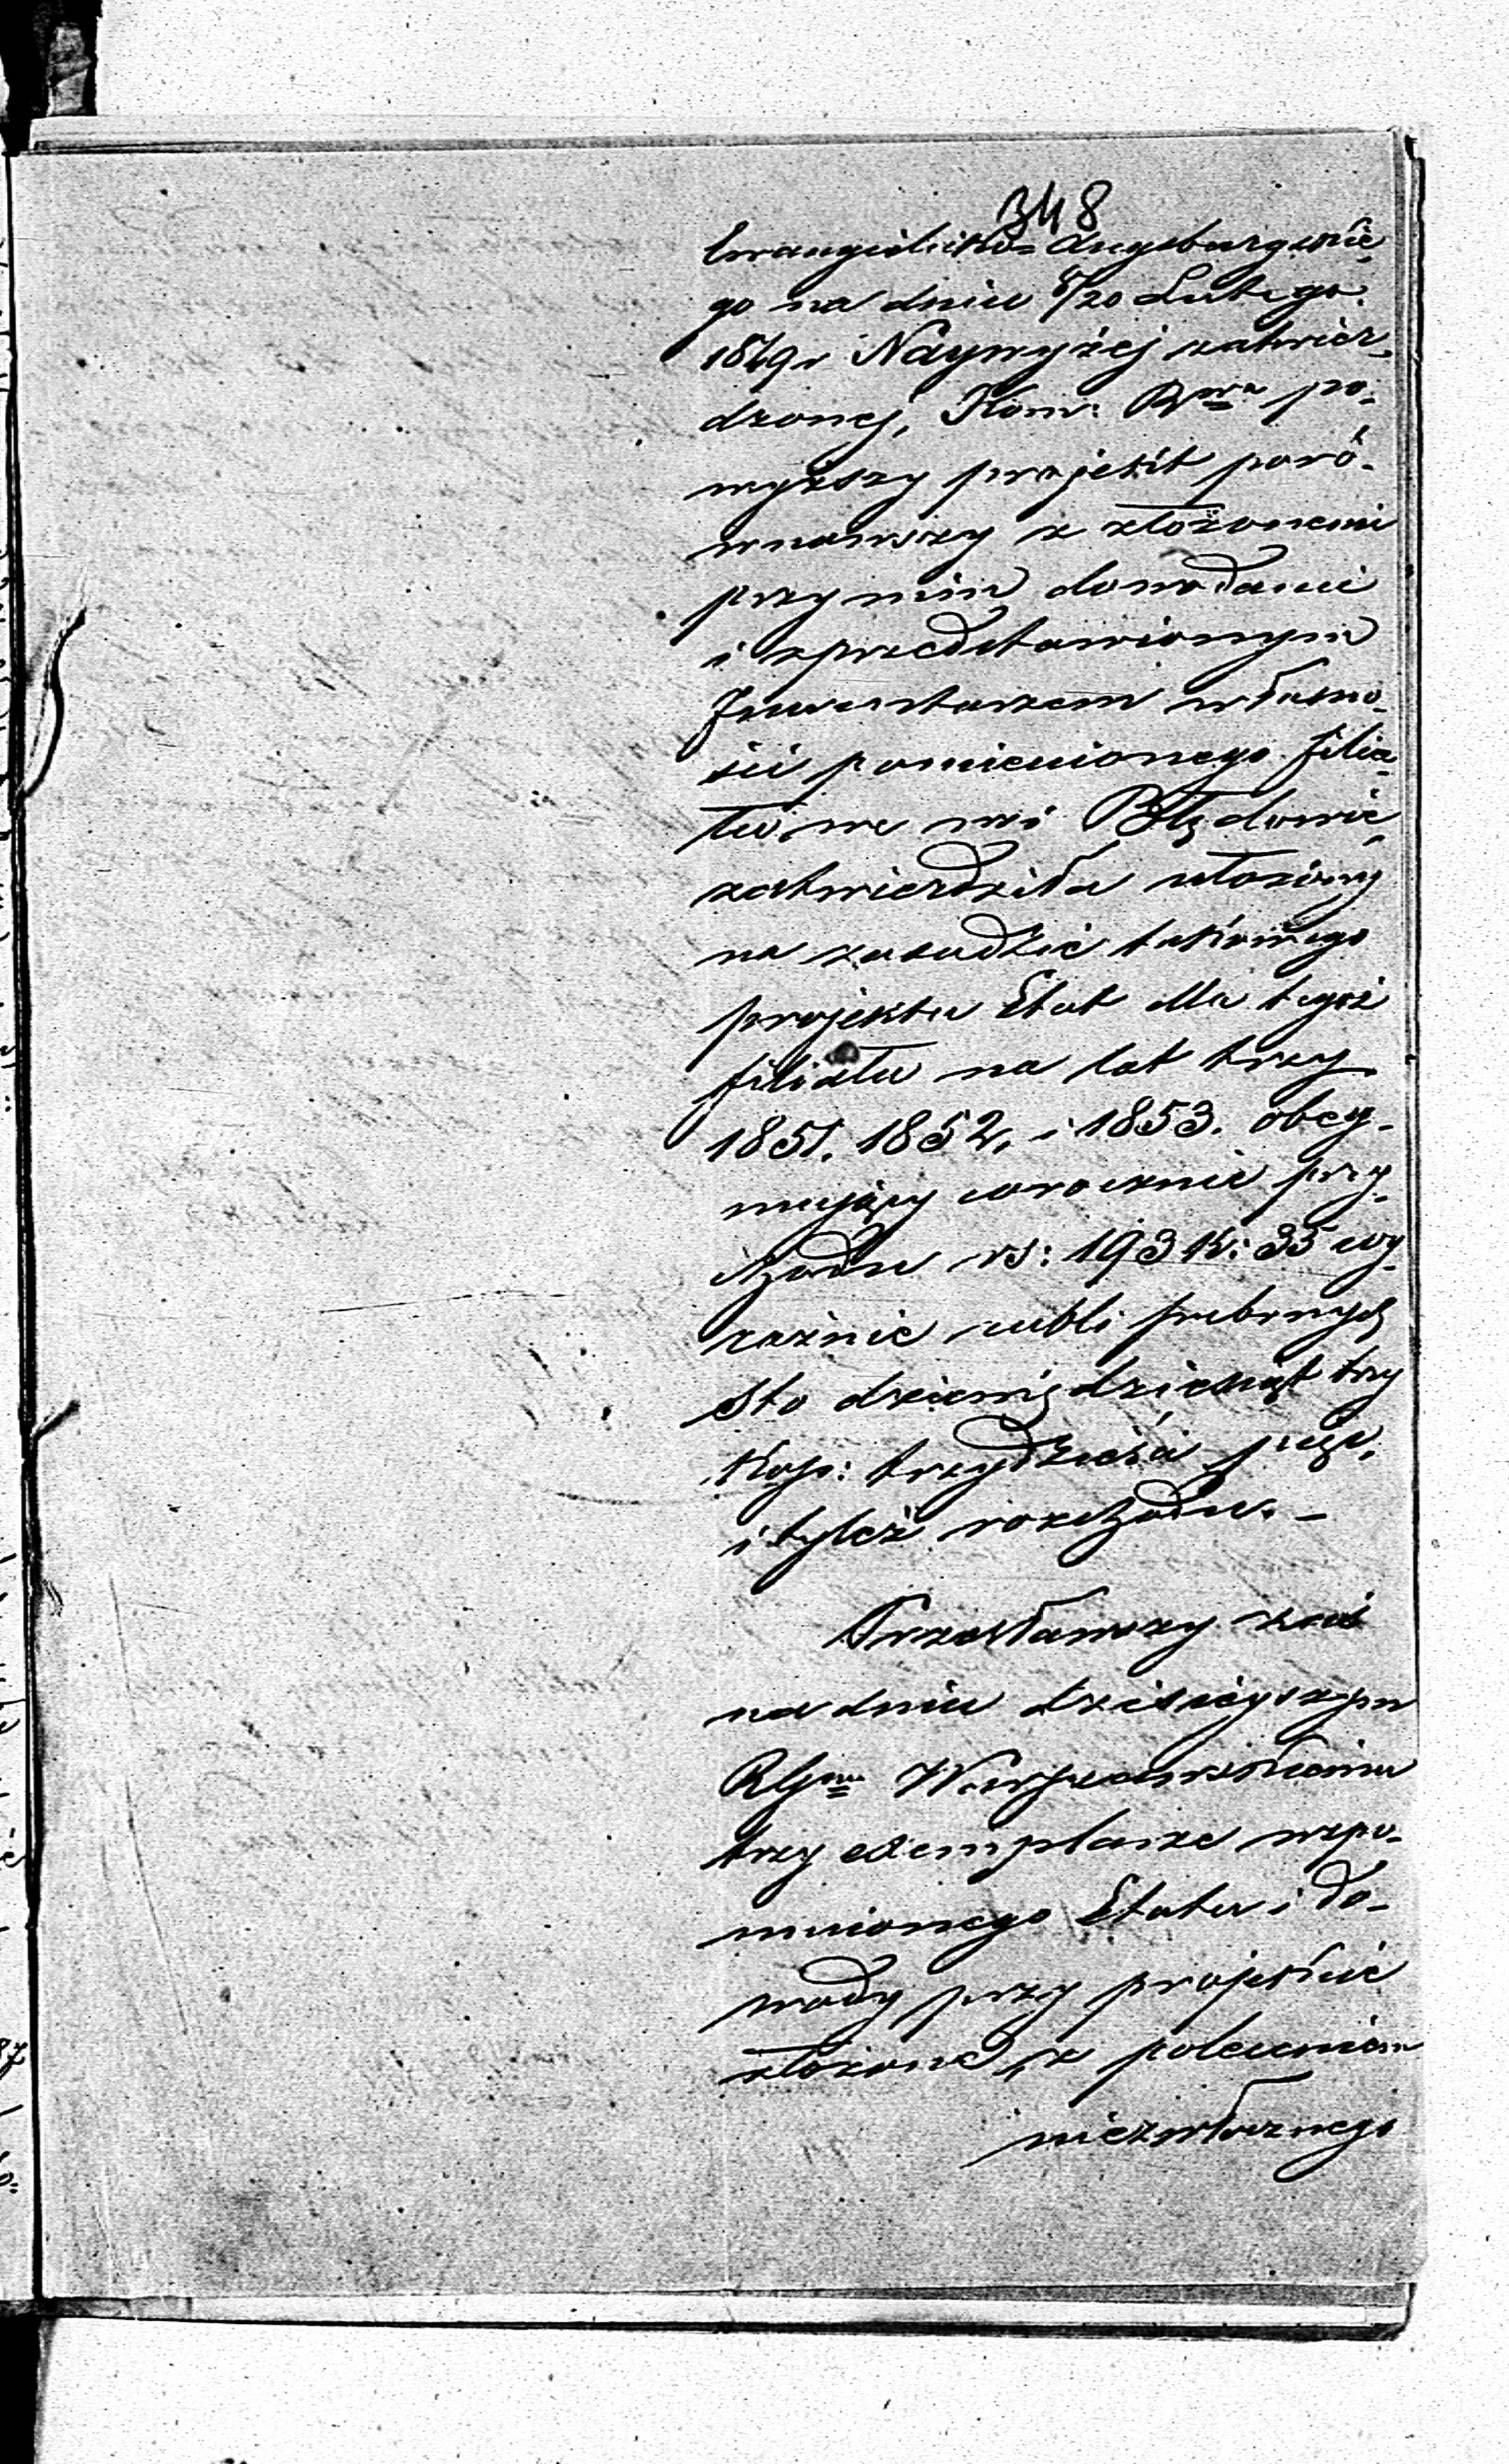 348
Ewangielicko=Augsburgskie=
go na dniu 8/20 Lutego
1849 r Naywyżej zatwier=
dzonej, Kom: Rwa po=
wyższy projekt poró=
wnawszy z złożonemi
przy nim dowodami
i z przedstawionym
Inwentarzem własno=
ści pomienionego filia=
łu we wsi Błędowie
zatwierdziła ułożony
na zasadzie takowego
projektu Etat dla tegoż
filiału na lat trzy
1851. 1852, i 1853. obey=
mujący corocznie przy=
chodu rs: 193 k: 35 wy=
raźnie rubli srebrnych
sto dziewiędziesiąt trzy
kop: trzydzieści pięć,
i tyleż rozchodu. –
Przesławszy zaś
na dniu dzisieyszym
RGmu Warszawskiemu
trzy exemplarze wspo=
mnionego Etatu i do=
wody przy projekcie
złożone, z poleceniem
niezwłocznego